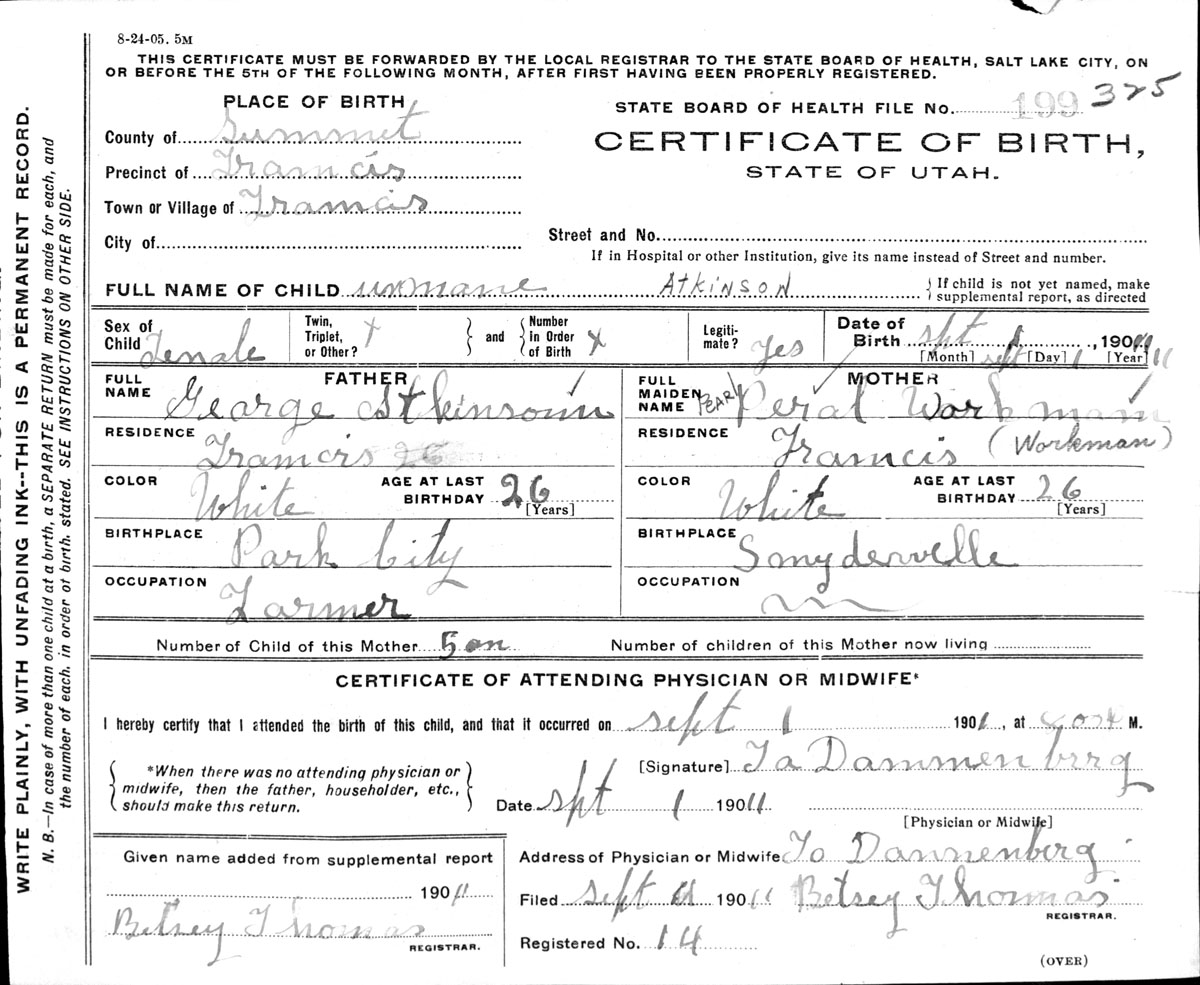 8-24-05. 5M
THIS CERTIFICATE MUST BE FORWARDED BY THE LOCAL REGISTRAR TO THE STATE BOARD OF HEALTH, SALT LAKE CITY, ON
OR BEFORE THE 5TH OF THE FOLLOWING MONTH, AFTER FIRST HAVING BEEN PROPERLY REGISTERED.
WRITE PLAINLY, WITH UNFADING INK--THIS IS A PERMANENT RECORD.
N. B.—In case of more than one child at a birth, a SEPARATE RETURN must be made for each, and
the number of each, in order of birth, stated. SEE INSTRUCTIONS ON OTHER SIDE.
PLACE OF BIRTH
County of Summet
Precinct of Francis
Town or Village of Francis
City of
STATE BOARD OF HEALTH FILE No. 199 325
CERTIFICATE OF BIRTH,
STATE OF UTAH.
Street and No.
If in Hospital or other Institution, give its name instead of Street and number.
FULL NAME OF CHILD unname ATKINSON
If child is not yet named, make
supplemental report, as directed
Sex of Child Female
Twin, Triplet, or Other? X
and
Number in Order of Birth X
Legiti-mate? Yes
Date of Birth spt 1, 190
[Month] sept [Day] 1 [Year] 11
FATHER
FULL NAME George Atkinson
RESIDENCE Francis 26
COLOR White
AGE AT LAST BIRTHDAY 26
[Years]
BIRTHPLACE Park City
OCCUPATION Farmer
MOTHER
FULL MAIDEN NAME PEARL Peral Workman
RESIDENCE Francis (Workman)
COLOR White
AGE AT LAST BIRTHDAY 26
[Years]
BIRTHPLACE Snyderville
OCCUPATION
Number of Child of this Mother 5
Number of children of this Mother now living
CERTIFICATE OF ATTENDING PHYSICIAN OR MIDWIFE*
I hereby certify that I attended the birth of this child, and that it occurred on sept 1 1901, at M.
*When there was no attending physician or
midwife, then the father, householder, etc.,
should make this return.
[Signature] Dannenbrrg
Date spt 1 190 11
[Physician or Midwife]
Given name added from supplemental report
190 11
Betsey Thomas
REGISTRAR.
Address of Physician or Midwife Dannenberg
Filed sept 190 11 Betsey Thomas
REGISTRAR.
Registered No. 14
(OVER)